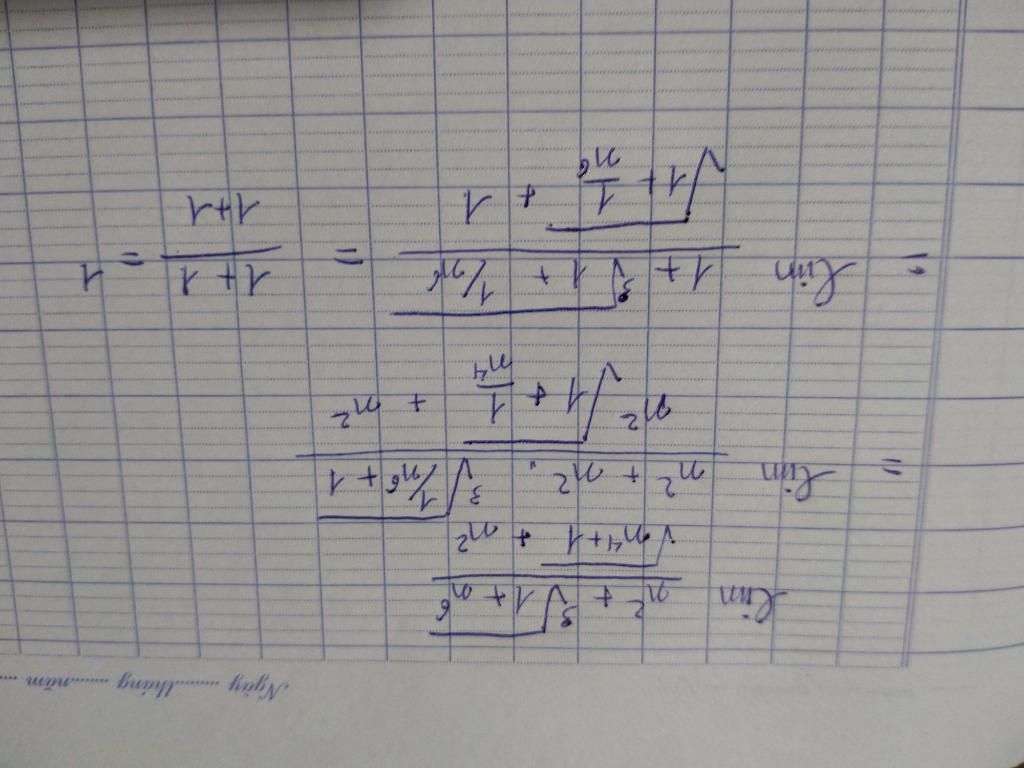 Ngày ........tháng ........năm ....
lim (n² + ∛(1 + n⁶)) / (√(n⁴+1) + n²)
= lim (n² + n² . ∛(1/n⁶ + 1)) / (n² √(1 + 1/n⁴) + n²)
= lim (1 + ∛(1 + 1/n⁶)) / (√(1 + 1/n⁶) + 1) = (1+1)/(1+1) = 1